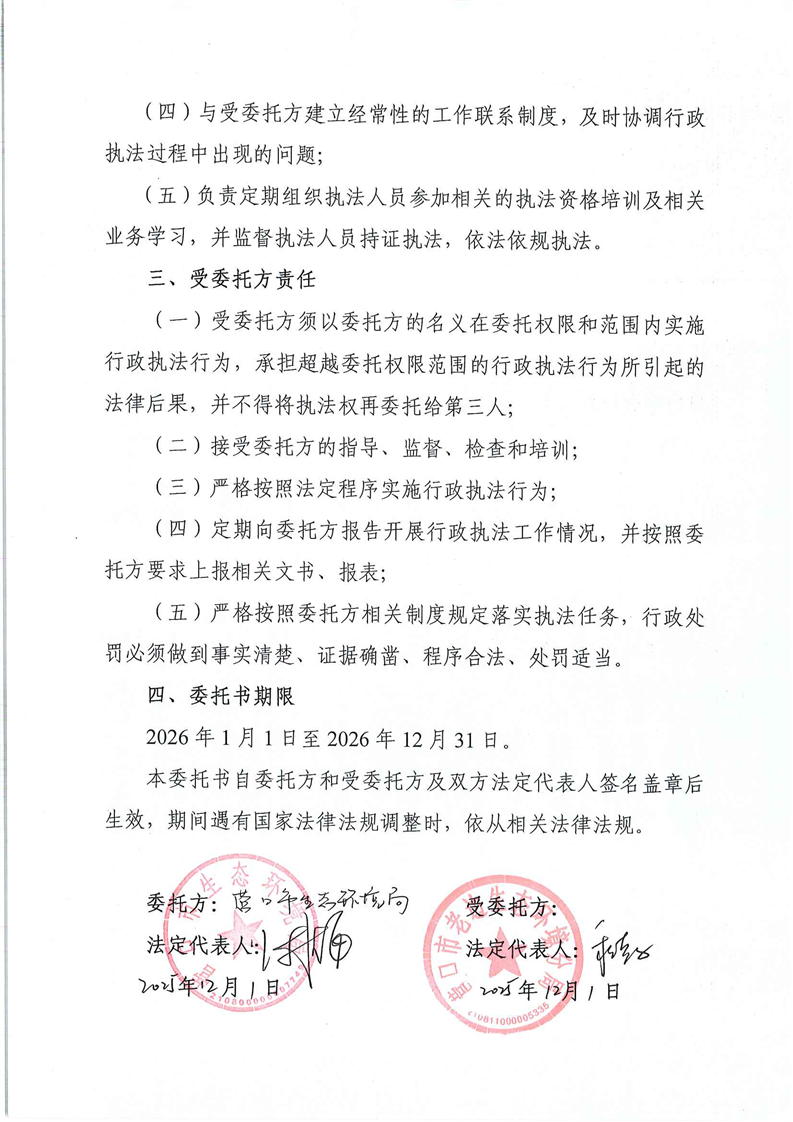 （四）与受委托方建立经常性的工作联系制度，及时协调行政
执法过程中出现的问题；
（五）负责定期组织执法人员参加相关的执法资格培训及相关
业务学习，并监督执法人员持证执法，依法依规执法。
三、受委托方责任
（一）受委托方须以委托方的名义在委托权限和范围内实施
行政执法行为，承担超越委托权限范围的行政执法行为所引起的
法律后果，并不得将执法权再委托给第三人；
（二）接受委托方的指导、监督、检查和培训；
（三）严格按照法定程序实施行政执法行为；
（四）定期向委托方报告开展行政执法工作情况，并按照委
托方要求上报相关文书、报表；
（五）严格按照委托方相关制度规定落实执法任务，行政处
罚必须做到事实清楚、证据确凿、程序合法、处罚适当。
四、委托书期限
2026年1月1日至2026年12月31日。
本委托书自委托方和受委托方及双方法定代表人签名盖章后
生效，期间遇有国家法律法规调整时，依从相关法律法规。
委托方：营口市生态环境局
法定代表人：
2025年12月1日
营口市生态环境局
受委托方：
法定代表人：
2025年12月1日
营口市老边生态环境分局
210811000005336